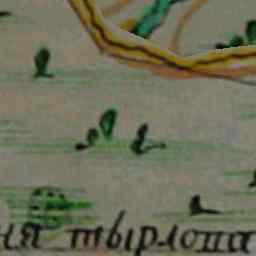 ня тырлоша